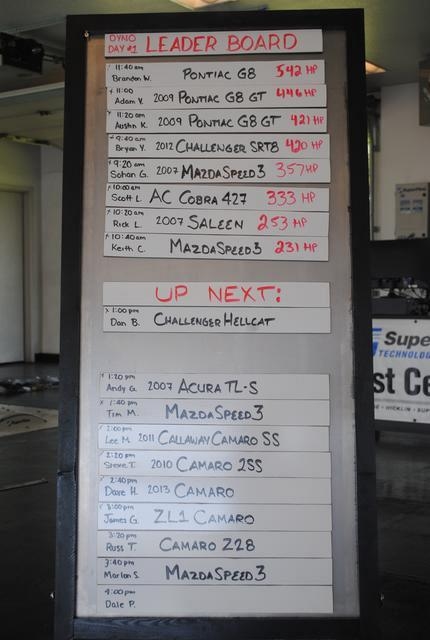 DYNO DAY #1 LEADER BOARD
11:40 am Brandon W. PONTIAC G8 542 HP
11:00 Adam V. 2009 PONTIAC G8 GT 446 HP
11:20 am Austin K. 2009 PONTIAC G8 GT 421 HP
9:40 am Bryan Y. 2012 CHALLENGER SRT8 420 HP
9:20 am Sohan G. 2007 MAZDASPEED3 357 HP
10:00 am Scott L. AC COBRA 427 333 HP
10:20 am Rick L. 2007 SALEEN 253 HP
10:40 am Keith C. MAZDASPEED3 231 HP
UP NEXT:
1:00 pm Dan B. CHALLENGER HELLCAT
1:20 pm Andy G. 2007 ACURA TL-S
1:40 pm Tim M. MAZDASPEED3
2:00 pm Lee M. 2011 CALLAWAY CAMARO SS
2:20 pm Steve T. 2010 CAMARO 2SS
2:40 pm Dave H. 2013 CAMARO
3:00 pm James G. ZL1 CAMARO
3:20 pm Russ T. CAMARO Z28
3:40 pm Marlon S. MAZDASPEED3
4:00 pm Dale P.
Supe
TECHNOLOG
st Ce